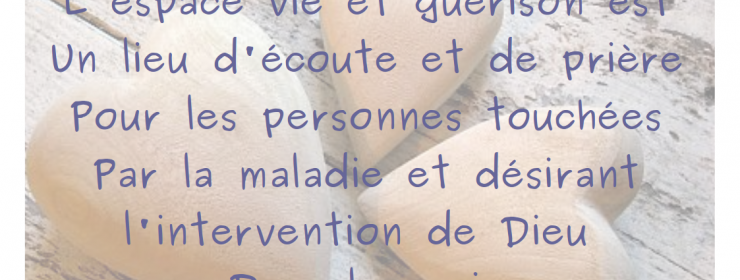 L'espace vie et guérison est
Un lieu d'écoute et de prière
Pour les personnes touchées
Par la maladie et désirant
l'intervention de Dieu